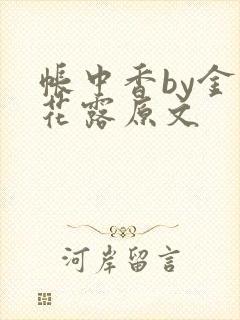 帐中香by金
花露原文
河岸留言